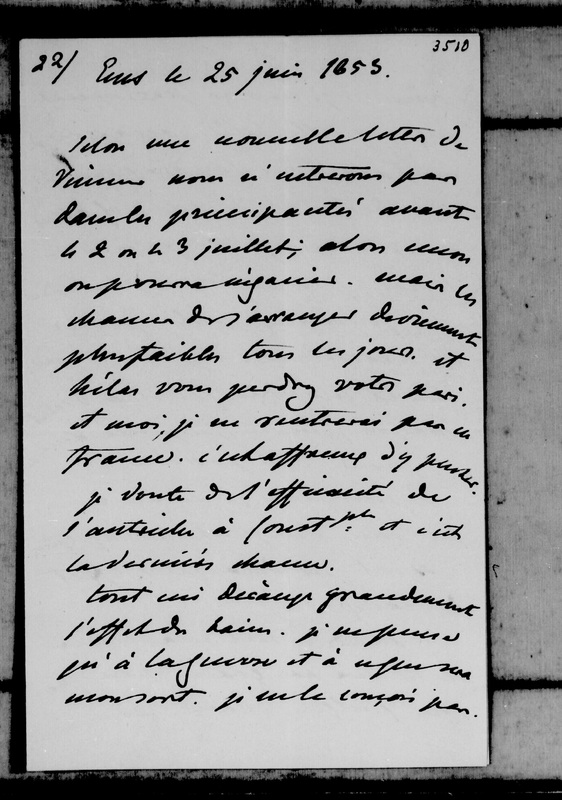 3510
22/ Ems le 25 juin 1853.
Selon une nouvelle lettre de
Vienne nous n'entrerons pas
dans les principautés avant
le 2 ou le 3 juillet; alors encore
on pourra négocier. mais les
chances de s'arranger deviennent
plus faibles tous les jours. et
hélas vous perdrez votre pari.
et moi, je ne rentrerai pas en
france. c'est affreux d'y penser.
je doute de l'efficacité de
l'autriche à Constple et c'est
la dernière chance.
tout ceci dérange grandement
l'effet des bains. je ne pense
qu'à la guerre et à ce que sera
mon sort. je ne le conçois pas.